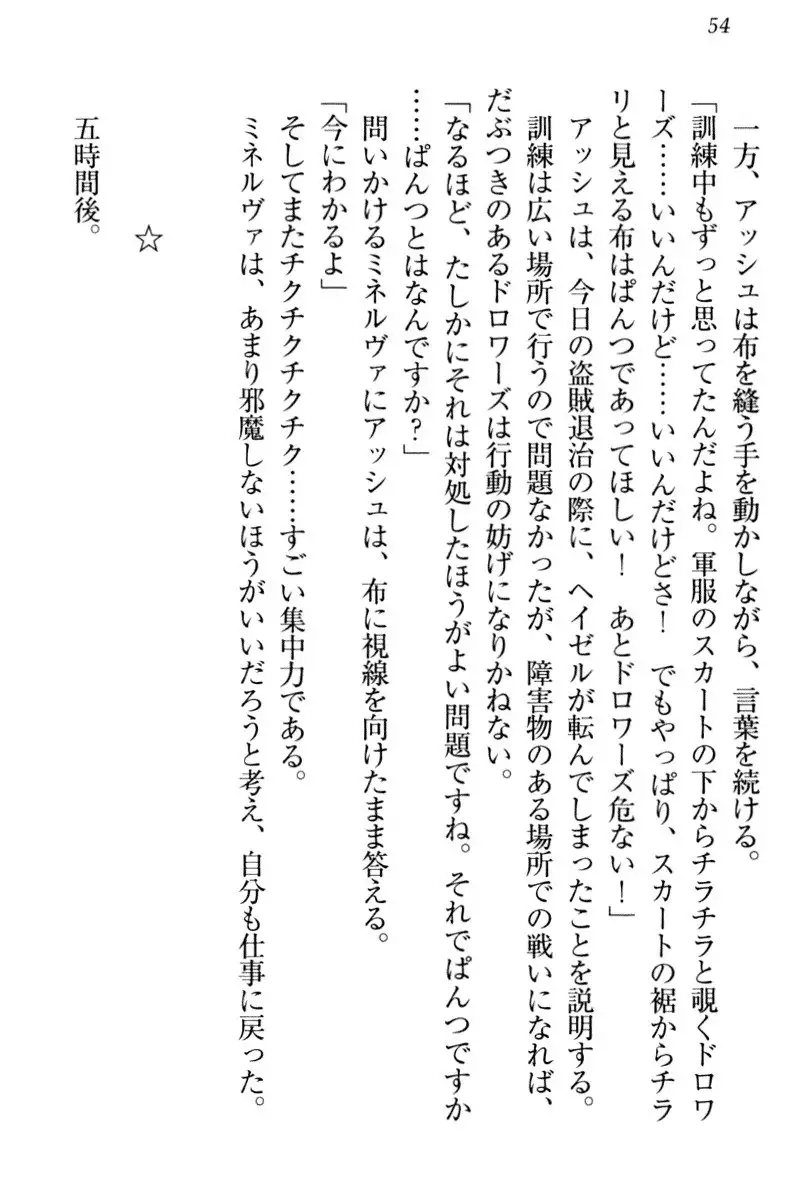 54
一方、アッシュは布を縫う手を動かしながら、言葉を続ける。
「訓練中もずっと思ってたんだよね。軍服のスカートの下からチラチラと覗くドロワ
ーズ……いいんだけど……いいんだけどさ！　でもやっぱり、スカートの裾からチラ
リと見える布はぱんつであってほしい！　あとドロワーズ危ない！」
アッシュは、今日の盗賊退治の際に、ヘイゼルが転んでしまったことを説明する。
訓練は広い場所で行うので問題なかったが、障害物のある場所での戦いになれば、
だぶつきのあるドロワーズは行動の妨げになりかねない。
「なるほど、たしかにそれは対処したほうがよい問題ですね。それでぱんつですか
……ぱんつとはなんですか？」
問いかけるミネルヴァにアッシュは、布に視線を向けたまま答える。
「今にわかるよ」
そしてまたチクチクチクチク……すごい集中力である。
ミネルヴァは、あまり邪魔しないほうがいいだろうと考え、自分も仕事に戻った。
☆
五時間後。